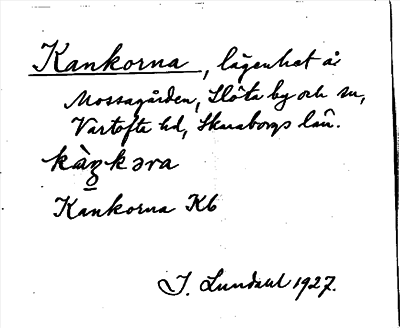 Kankorna, lägenhet å
Mossagården, Slöta by och sn,
Vartofta hd, Skaraborgs län.
kàŋkəra
Kankorna Kb
J. Lundahl 1927.